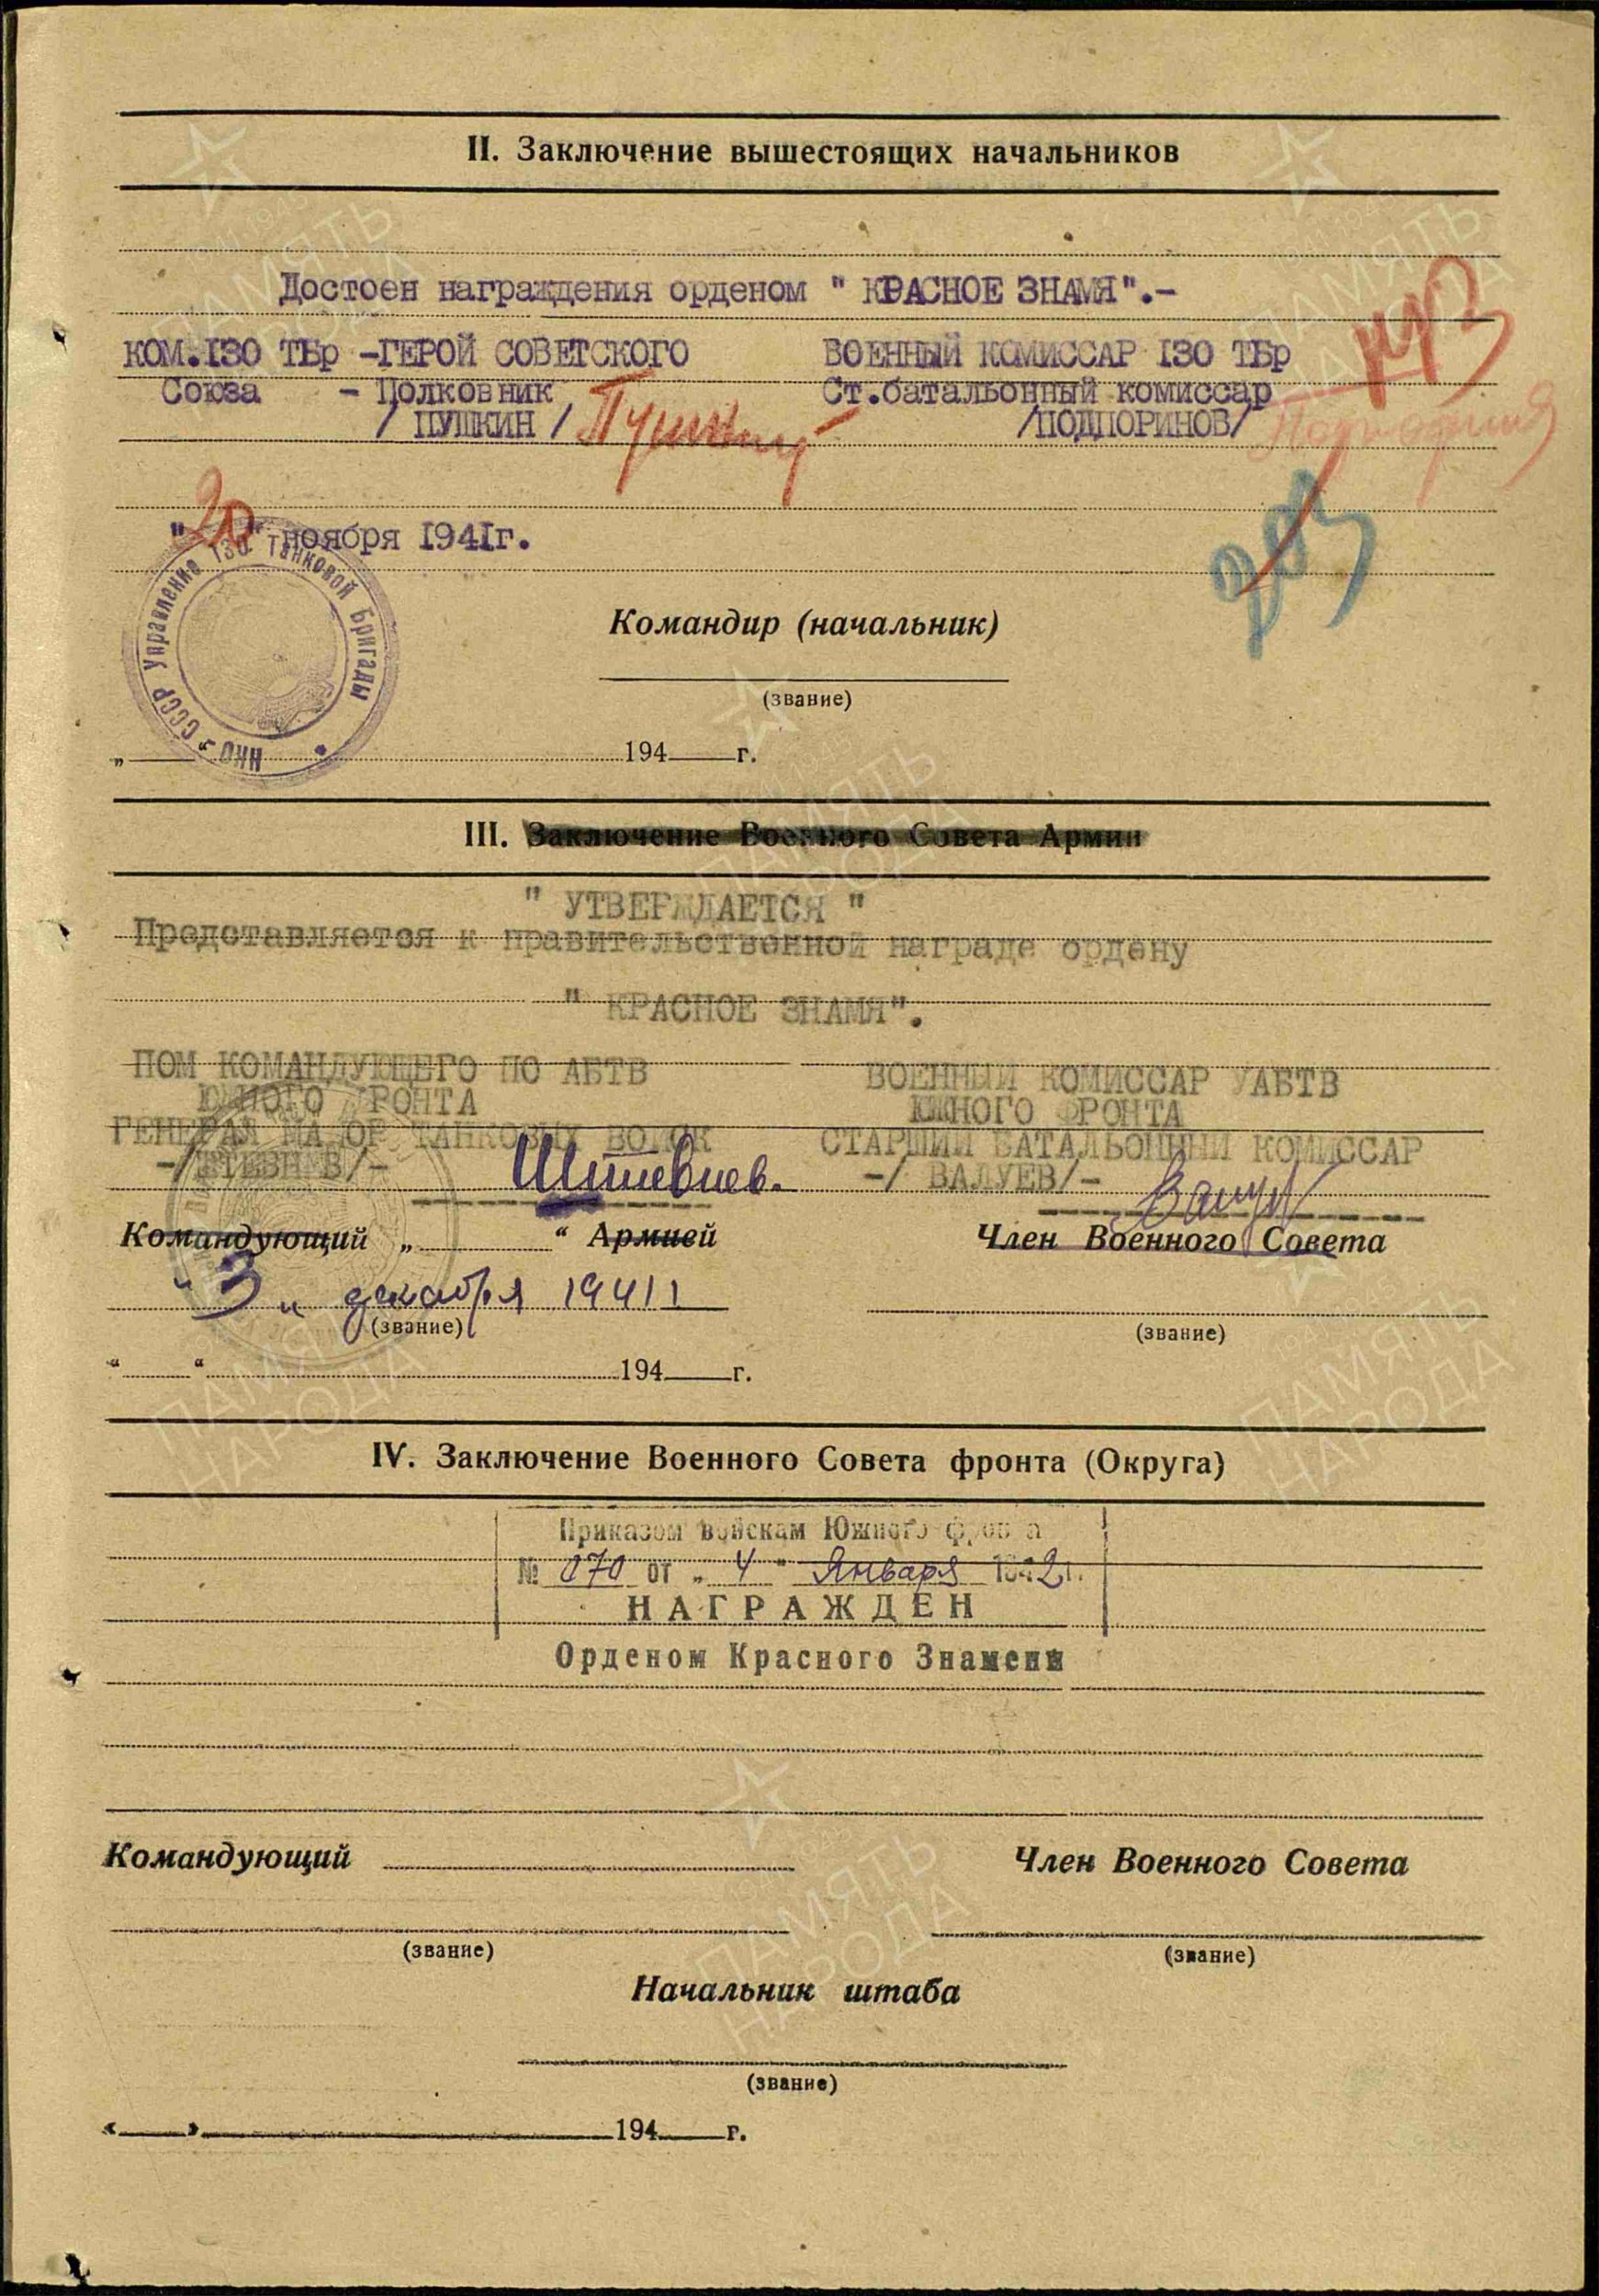 II. Заключение вышестоящих начальников
Достоен награждения орденом " КРАСНОЕ ЗНАМЯ".-
КОМ.I30 ТБр -ГЕРОЙ СОВЕТСКОГО
Союза - Полковник
/ ПУШКИН /
ВОЕННЫЙ КОМИССАР I30 ТБр
Ст.батальонный комиссар
/ПОДПОРИНОВ/
"20" ноября I941г.
НКО СССР Управление 130 Танковой Бригады
Командир (начальник)
(звание)
„ 194 г.
III. Заключение Военного Совета Армии
" УТВЕРЖДАЕТСЯ "
Представляется к правительственной награде ордену
" КРАСНОЕ ЗНАМЯ".
ПОМ КОМАНДУЮЩЕГО ПО АБТВ
ЮЖНОГО ФРОНТА
ГЕНЕРАЛ МАЙОР ТАНКОВЫХ ВОЙСК
-/ШТЕВНЕВ/- Штевнев.
ВОЕННЫЙ КОМИССАР УАБТВ
ЮЖНОГО ФРОНТА
СТАРШИЙ БАТАЛЬОННЫЙ КОМИССАР
-/ ВАЛУЕВ/-
Командующий „ “ Армией
Член Военного Совета
"3" декабря 1941г
(звание)
(звание)
“ “ 194 г.
IV. Заключение Военного Совета фронта (Округа)
Приказом войскам Южного фронта
№ 070 от „ 4 " Января 1942г.
НАГРАЖДЕН
Орденом Красного Знамени
Командующий
Член Военного Совета
(звание)
(звание)
Начальник штаба
(звание)
« » 194 г.
ПАМЯТЬ
НАРОДА